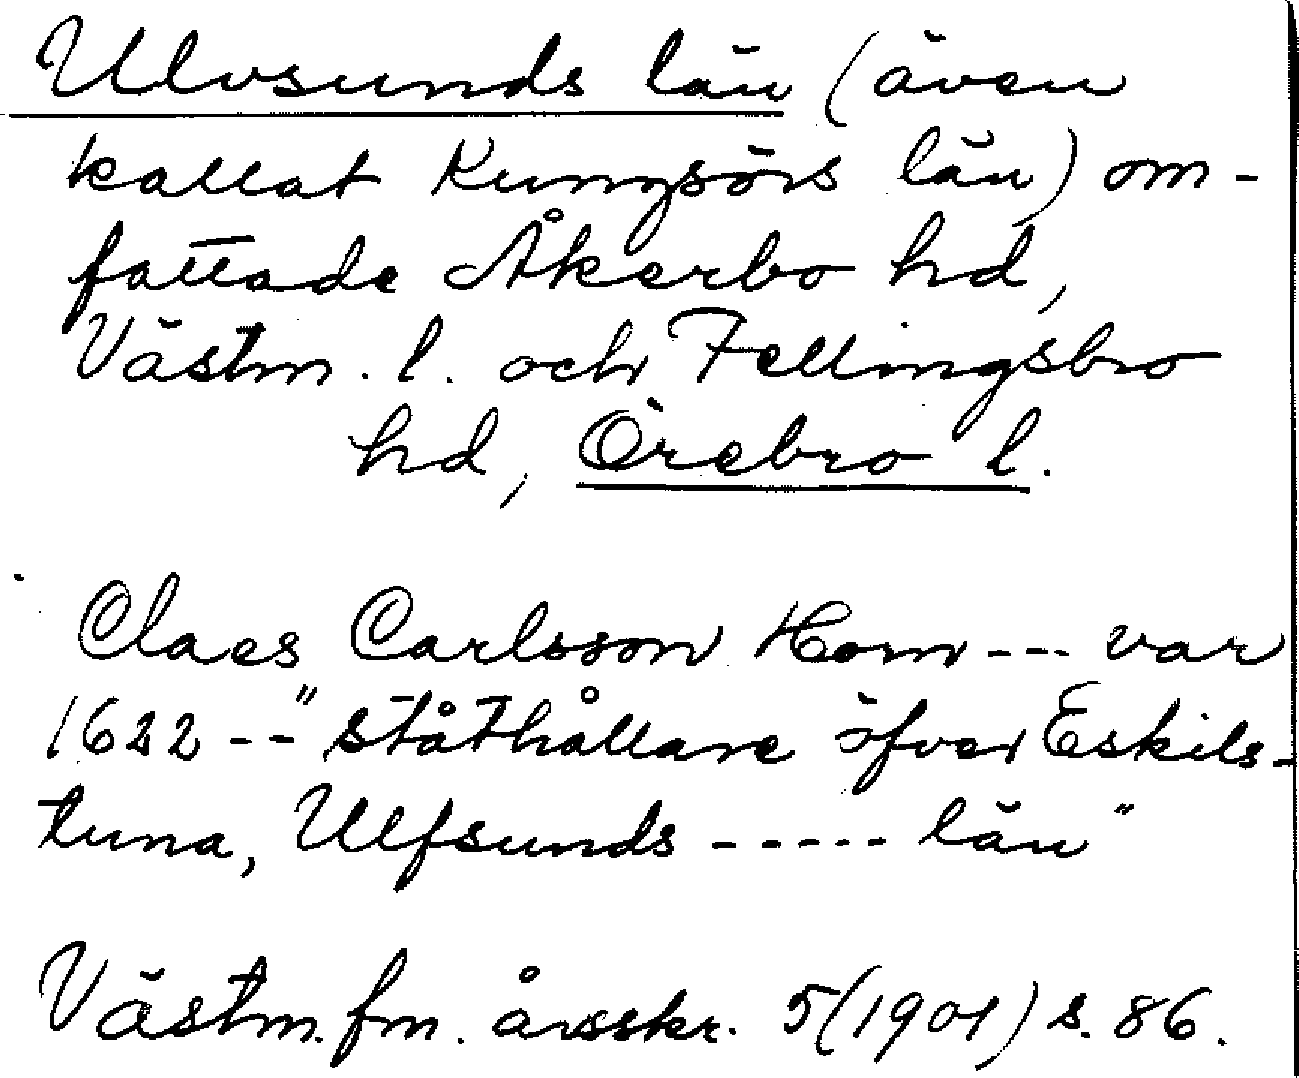 Ulvsunds län (även
kallat Kungsörs län) om-
fattade Åkerbo hd,
Västm. l. och Fellingsbro
hd, Örebro l.
Claes Carlsson Horn --- var
1622 -- "ståthållare öfver Eskils-
tuna, Ulfsunds ----- län"
Västm. fm. årsskr. 5(1901) s. 86.